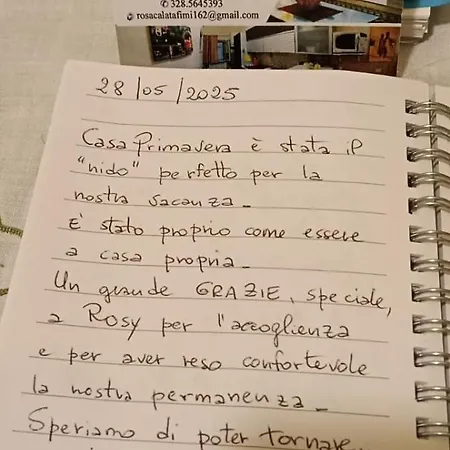 328.5645393
rosacalatafimi162@gmail.com
28/05/2025
Casa Primavera è stata il
"nido" perfetto per la
nostra vacanza.
E' stato proprio come essere
a casa propria.
Un grande GRAZIE, speciale,
a Rosy per l'accoglienza
e per aver reso confortevole
la nostra permanenza.
Speriamo di poter tornare